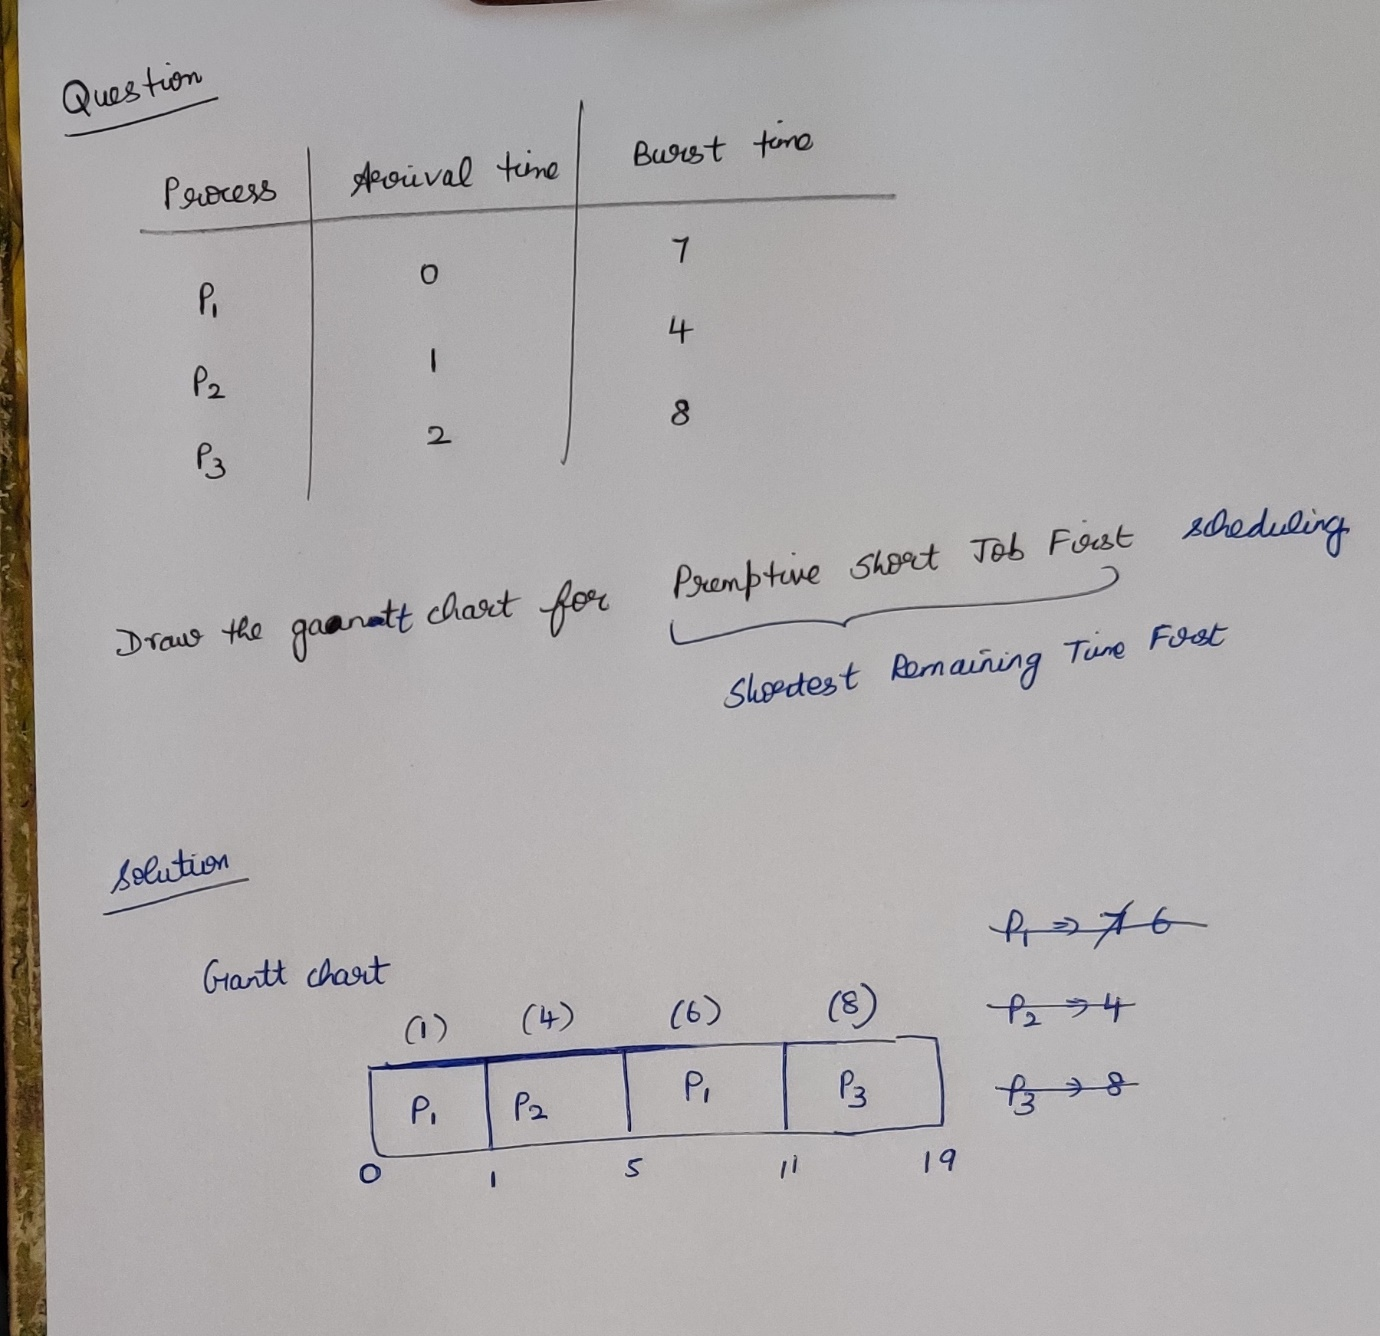 Question
Process Arrival time Burst time
P1 0 7
P2 1 4
P3 2 8
Draw the gaanatt chart for Premptive Short Job First scheduling
Shortest Remaining Time First
Solution
Gantt chart
P1 ⇒ 7 6
P2 → 4
P3 → 8
(1) (4) (6) (8)
P1 P2 P1 P3
0 1 5 11 19